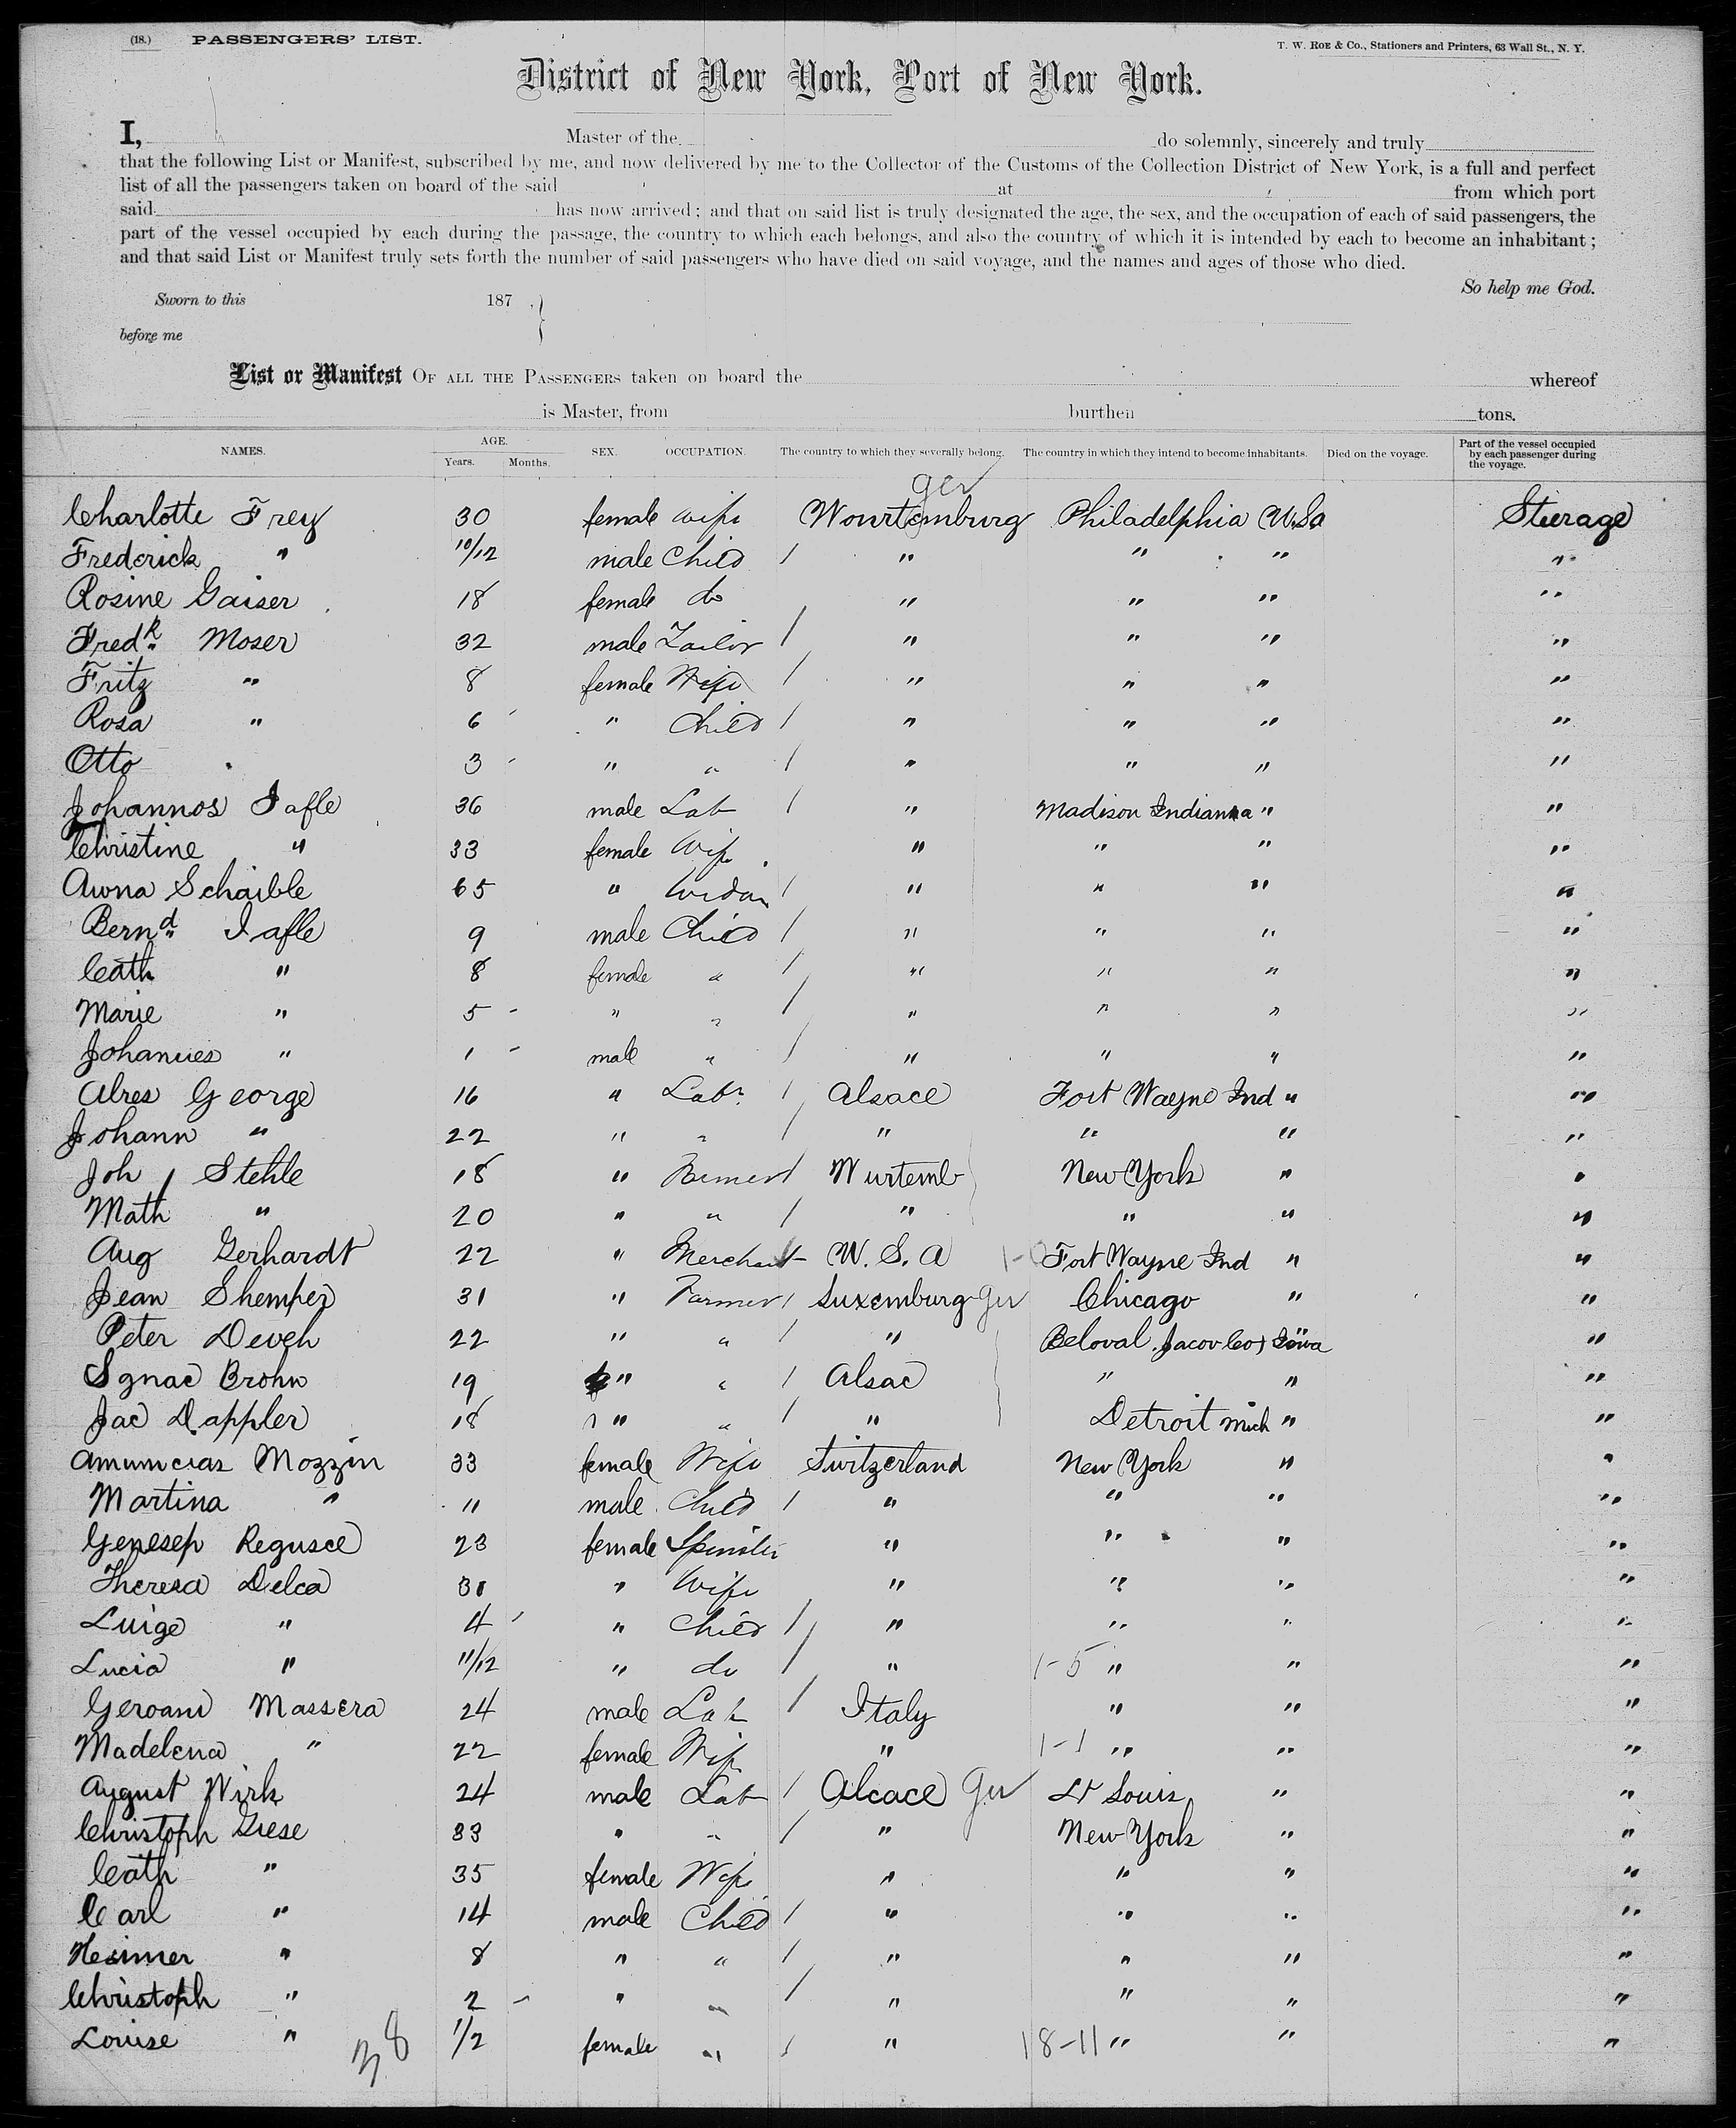 (18.) PASSENGERS' LIST. T. W. ROE & Co., Stationers and Printers, 63 Wall St., N. Y.
District of New York, Port of New York.
I, Master of the do solemnly, sincerely and truly
that the following List or Manifest, subscribed by me, and now delivered by me to the Collector of the Customs of the Collection District of New York, is a full and perfect
list of all the passengers taken on board of the said at from which port
said has now arrived; and that on said list is truly designated the age, the sex, and the occupation of each of said passengers, the
part of the vessel occupied by each during the passage, the country to which each belongs, and also the country of which it is intended by each to become an inhabitant;
and that said List or Manifest truly sets forth the number of said passengers who have died on said voyage, and the names and ages of those who died.
So help me God.
Sworn to this 187
before me
List or Manifest OF ALL THE PASSENGERS taken on board the whereof
is Master, from burthen tons.
NAMES. AGE. Years. Months. SEX. OCCUPATION. The country to which they severally belong. The country in which they intend to become inhabitants. Died on the voyage. Part of the vessel occupied by each passenger during the voyage.
ger
Charlotte Frey 30 female wife Wourtemburg Philadelphia U.Sa Steerage
Frederick " 10/12 male Child / " " " "
Rosine Gaiser 18 female do " " " "
Fredk Moser 32 male Tailor / " " " "
Fritz " 8 female Wife / " " " "
Rosa " 6 " Child / " " " "
Otto 3 " " / " " " "
Johannos Iafle 36 male Lab / " Madison Indianna " "
Christine " 33 female Wife " " " "
Anna Schaible 65 " Widow / " " " "
Bernd Iafle 9 male Child / " " " "
Cath " 8 female " / " " " "
Marie " 5 " " / " " " "
Johannes " 1 male " / " " " "
Alres George 16 " Labr / Alsace Fort Wayne Ind " "
Johann " 22 " " / " " " "
Joh Stehle 18 " Farmer / Wurtemb New York " "
Math " 20 " " / " " " "
Aug Gerhardt 22 " Merchant U. S. A 1-0 Fort Wayne Ind " "
Jean Shemper 31 " Farmer / Luxemburg Ger Chicago " "
Peter Deveh 22 " " / " Beloval. Jacov Co) Iowa "
Ignac Brohn 19 " " / Alsac " " "
Jac Dappler 18 " " / " Detroit Mich " "
Mozzin 33 female Wife Switzerland New York " "
Martina " 11 male Child / " " " "
Genesep Regusce 23 female Spinster " " " "
Theresa Delca 31 " Wife " " " "
Luige " 4 " Child / " " " "
Lucia " 11/12 " do / " 1-5 " " "
Geroani Massera 24 male Lab / Italy " " "
Madelena " 22 female Wife " 1-1 " " "
August Wirk 24 male Lab / Alcace Ger St Louis " "
Christoph Giese 33 " " / " New York " "
Cath " 35 female Wife " " " "
Carl " 14 male Child / " " " "
Hesimer " 8 " " / " " " "
Christoph " 2 " " / " " " "
Louise " 1/2 female " / " 18-11 " " "
38